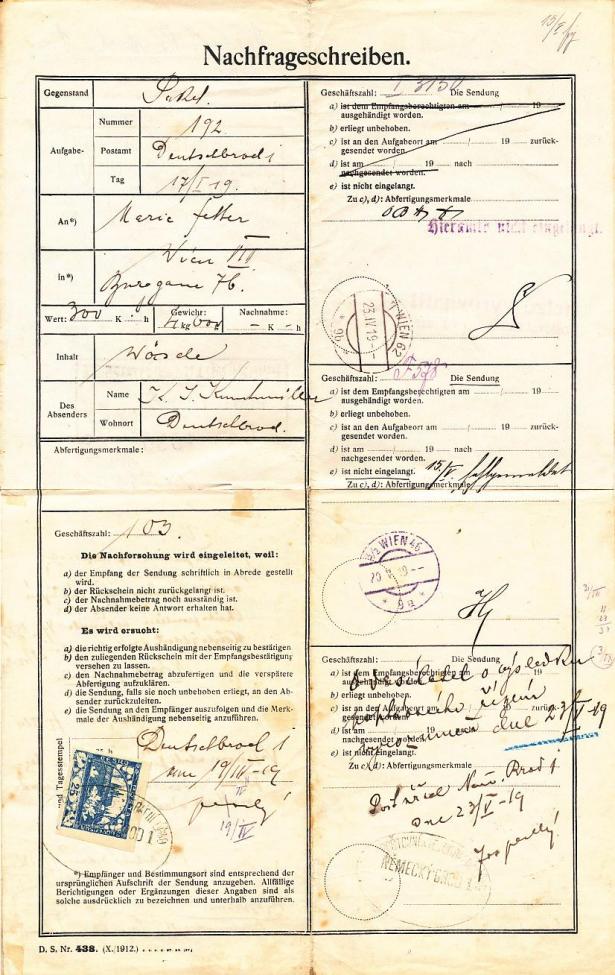 Nachfrageschreiben.
Gegenstand Paket.
Aufgabe-
Nummer 192
Postamt Deutschbrod 1
Tag 17/I 19.
An*) Marie
in*) Wien VII
76.
Wert: 300 K - h
Gewicht: 4 kg 000
Nachnahme: - K - h
Inhalt Wäsche
Des Absenders
Name
Wohnort Deutschbrod.
Abfertigungsmerkmale:
Geschäftszahl: 103.
Die Nachforschung wird eingeleitet, weil:
a) der Empfang der Sendung schriftlich in Abrede gestellt
wird.
b) der Rückschein nicht zurückgelangt ist.
c) der Nachnahmebetrag noch ausständig ist.
d) der Absender keine Antwort erhalten hat.
Es wird ersucht:
a) die richtig erfolgte Aushändigung nebenseitig zu bestätigen
b) den zuliegenden Rückschein mit der Empfangsbestätigung
versehen zu lassen.
c) den Nachnahmebetrag abzufertigen und die verspätete
Abfertigung aufzuklären.
d) die Sendung, falls sie noch unbehoben erliegt, an den Ab-
sender zurückzuleiten.
e) die Sendung an den Empfänger auszufolgen und die Merk-
male der Aushändigung nebenseitig anzuführen.
und Tagesstempel
Deutschbrod 1
am 19/IV -19
25
19/IV
*) Empfänger und Bestimmungsort sind entsprechend der
ursprünglichen Aufschrift der Sendung anzugeben. Allfällige
Berichtigungen oder Ergänzungen dieser Angaben sind als
solche ausdrücklich zu bezeichnen und unterhalb anzuführen.
D. S. Nr. 438. (X. 1912.)
Geschäftszahl: I 3150 Die Sendung
a) ist dem Empfangsberechtigten am / 19
ausgehändigt worden.
b) erliegt unbehoben.
c) ist an den Aufgabeort am / 19 zurück-
gesendet worden.
d) ist am / 19 nach
nachgesendet worden.
e) ist nicht eingelangt.
Zu c), d): Abfertigungsmerkmale
Hieramts nicht eingelangt.
WIEN 62
23.IV.19
9b
Geschäftszahl: 578 Die Sendung
a) ist dem Empfangsberechtigten am / 19
ausgehändigt worden.
b) erliegt unbehoben.
c) ist an den Aufgabeort am / 19 zurück-
gesendet worden.
d) ist am / 19 nach
nachgesendet worden.
e) ist nicht eingelangt.
Zu c), d): Abfertigungsmerkmale
WIEN 46
9a
Geschäftszahl: Die Sendung
a) ist dem Empfangsberechtigten am 19
ausgehändigt worden.
b) erliegt unbehoben.
c) ist an den Aufgabeort am 19 zurück-
gesendet worden.
d) ist am 19 nach
nachgesendet worden.
e) ist nicht eingelangt.
Zu c), d): Abfertigungsmerkmale
o výsledku
dne 23/V -19
Brod 1
dne 23/V -19
NĚMECKÝ BROD 1